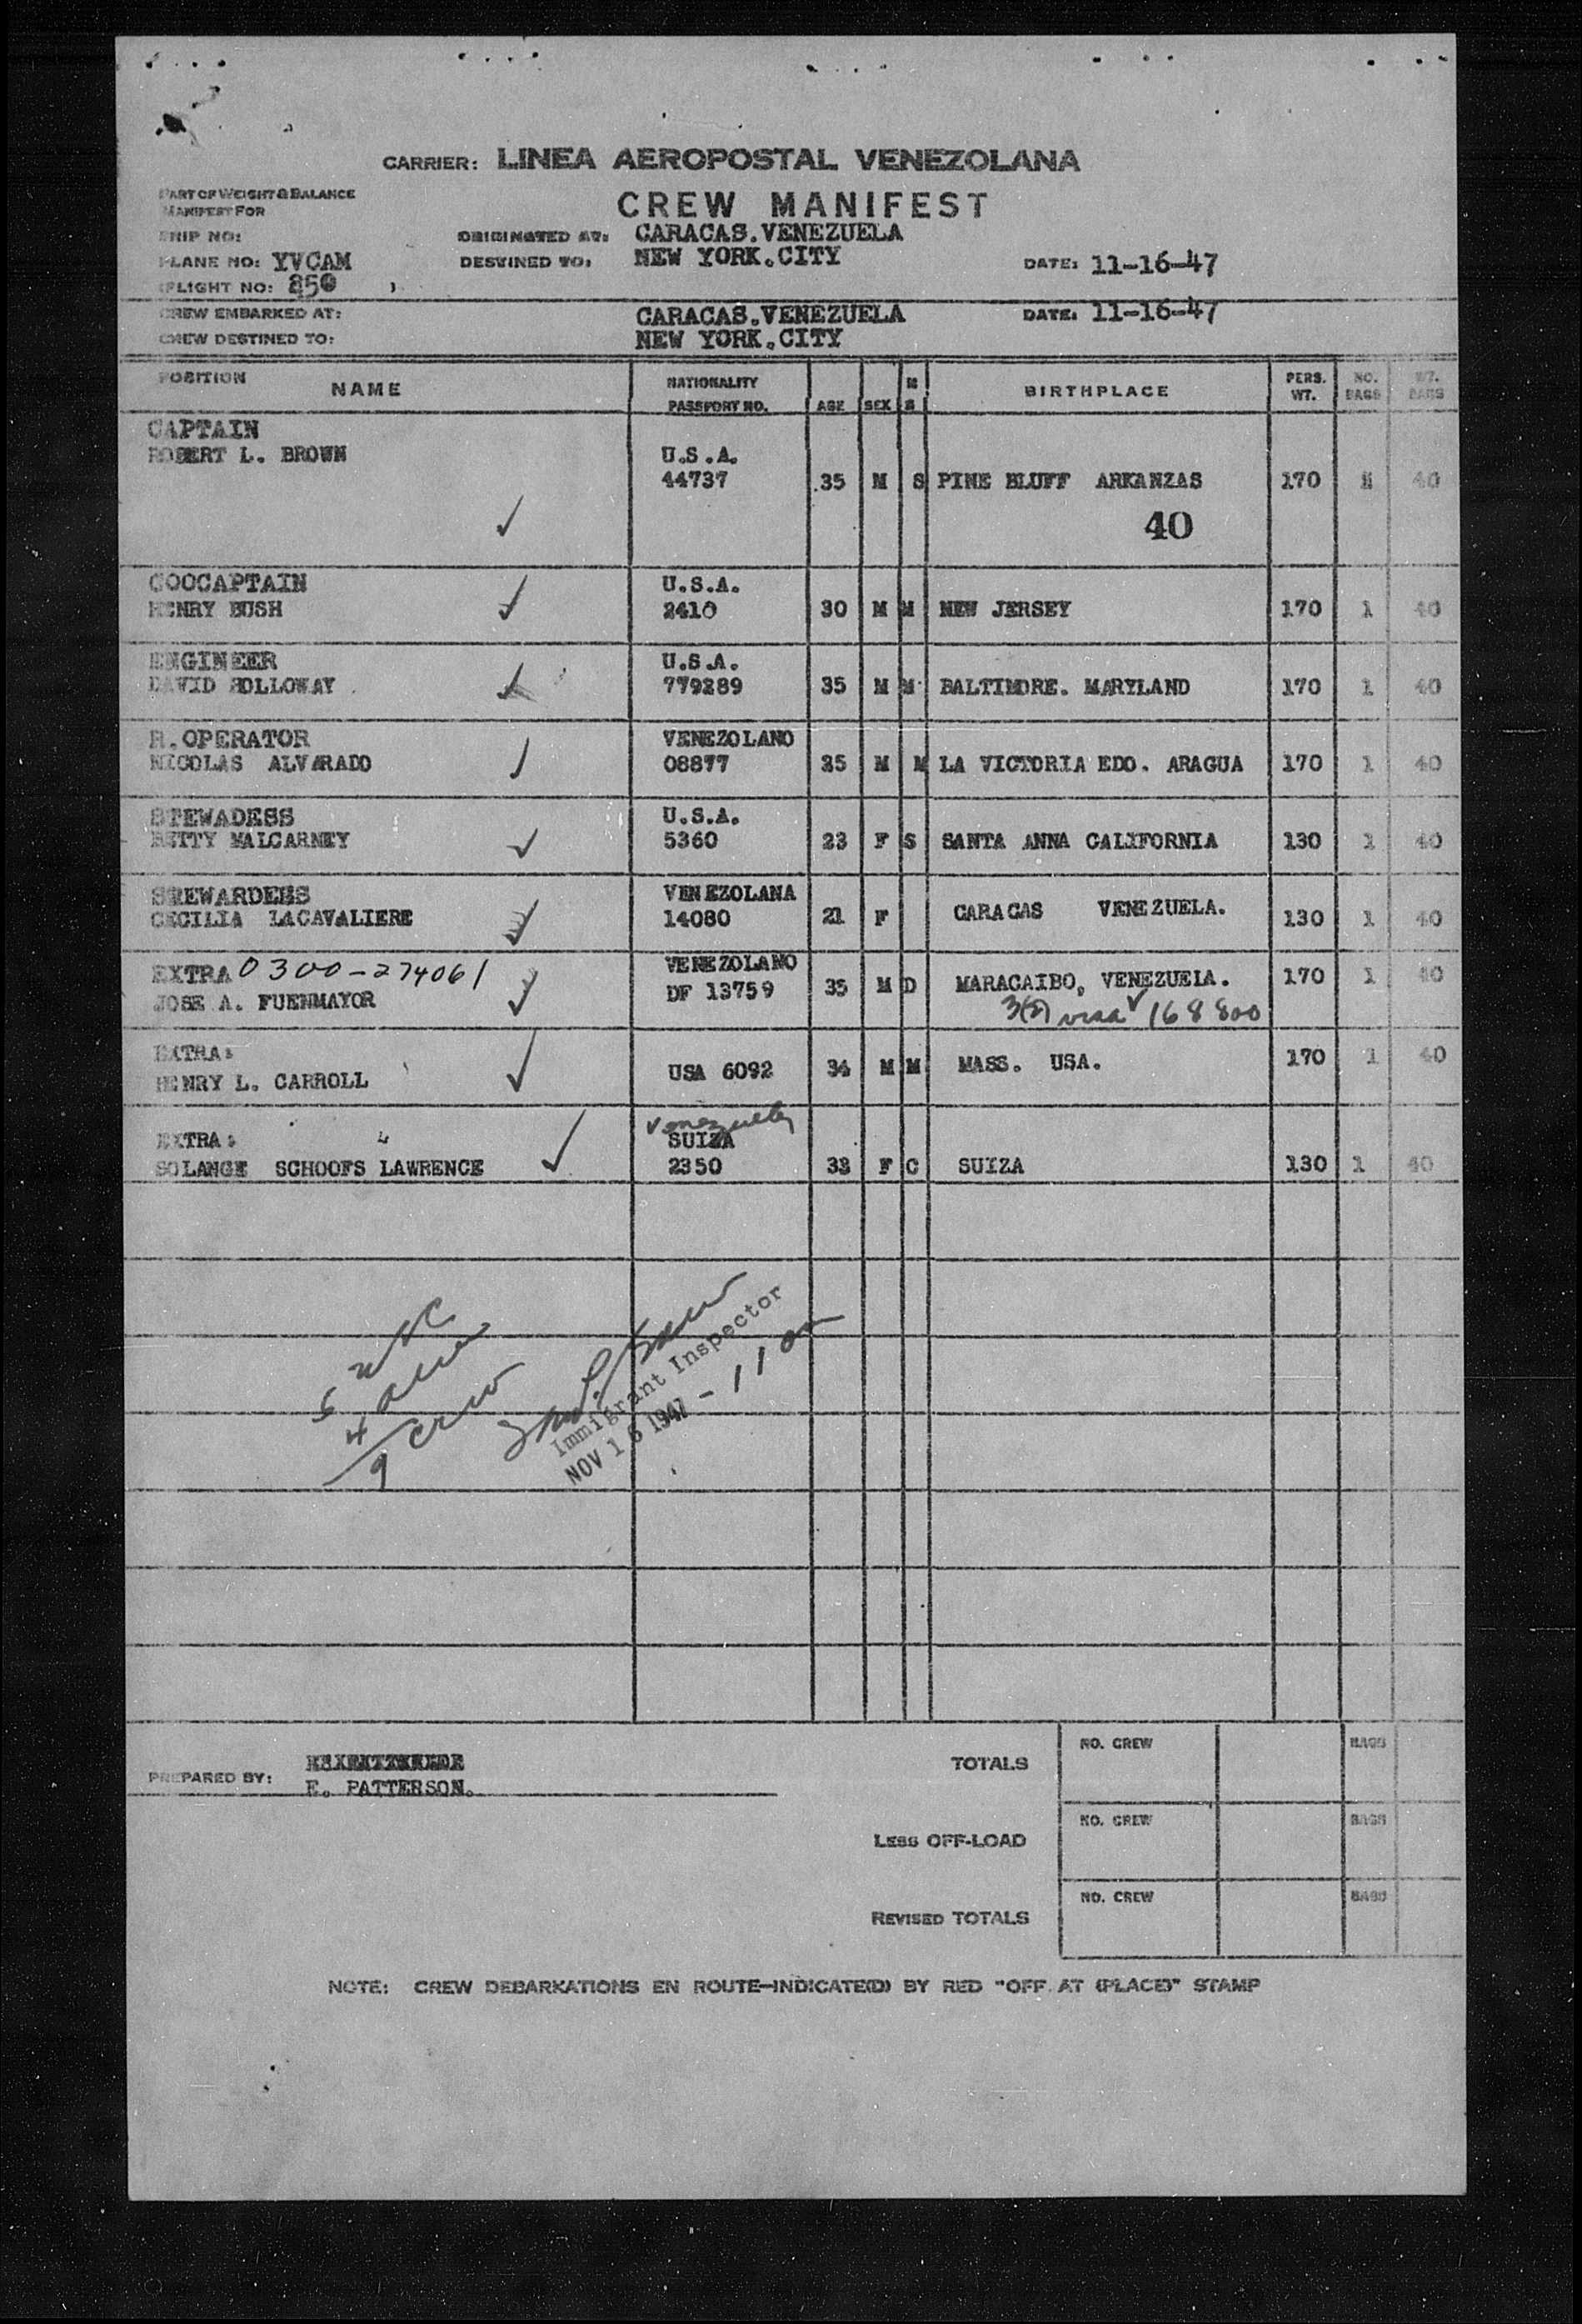 CARRIER: LINEA AEROPOSTAL VENEZOLANA
PART OF WEIGHT & BALANCE
MANIFEST FOR
CREW MANIFEST
SHIP NO:
ORIGINATED AT: CARACAS.VENEZUELA
PLANE NO: YVCAM
DESTINED TO: NEW YORK.CITY
DATE: 11-16-47
FLIGHT NO: 850
CREW EMBARKED AT: CARACAS.VENEZUELA DATE: 11-16-47
CREW DESTINED TO: NEW YORK.CITY
POSITION NAME NATIONALITY PASSPORT NO. AGE SEX M S BIRTHPLACE PERS. WT. NO. BAGS WT. BAGS
CAPTAIN
ROBERT L. BROWN U.S.A.
44737 35 M S PINE BLUFF ARKANZAS 170 40
40
COOCAPTAIN U.S.A.
HENRY BUSH 2410 30 M M NEW JERSEY 170 1 40
ENGINEER U.S.A.
DAVID HOLLOWAY 779289 35 M M BALTIMORE. MARYLAND 170 1 40
R.OPERATOR VENEZOLANO
NICOLAS ALVARADO 08877 35 M M LA VICTORIA EDO. ARAGUA 170 1 40
STEWADESS U.S.A.
BETTY MALCARNEY 5360 23 F S SANTA ANNA CALIFORNIA 130 1 40
STEWARDESS VENEZOLANA
CECILIA LACAVALIERE 14080 21 F CARACAS VENEZUELA. 130 1 40
EXTRA 0300-274061 VENEZOLANO
JOSE A. FUENMAYOR DF 13759 35 M D MARACAIBO, VENEZUELA. 170 1 40
3(2) visa 168800
EXTRA:
HENRY L. CARROLL USA 6092 34 M M MASS. USA. 170 1 40
Venezuela
EXTRA: SUIZA
SOLANGE SCHOOFS LAWRENCE 2350 33 F C SUIZA 130 1 40
5 usc
4 alien
9 crew
Immigrant Inspector
NOV 16 1947 - 11 am
PREPARED BY: E. PATTERSON.
TOTALS NO. CREW BAGS
LESS OFF-LOAD NO. CREW BAGS
REVISED TOTALS NO. CREW BAGS
NOTE: CREW DEBARKATIONS EN ROUTE—INDICATE(D) BY RED "OFF AT (PLACE)" STAMP